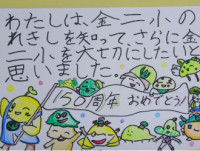 わたしは、金二小の
れきしを知って、さらに金
二小を大切にしたいと
思いました。
150周年 おめでとう!